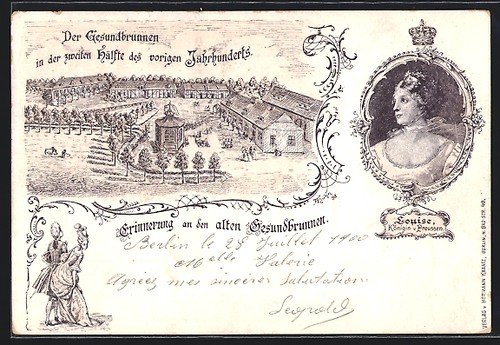 Der Gesundbrunnen
in der zweiten Hälfte des vorigen Jahrhunderts.
Louise,
Königin v. Preussen.
Erinnerung an den alten Gesundbrunnen.
Berlin le 28 Juillet 1900
Melle Valerie
Agreez mes sinceres Salutations
Leopold
VERLAG V. HERMANN KRAATZ, BERLIN, N.